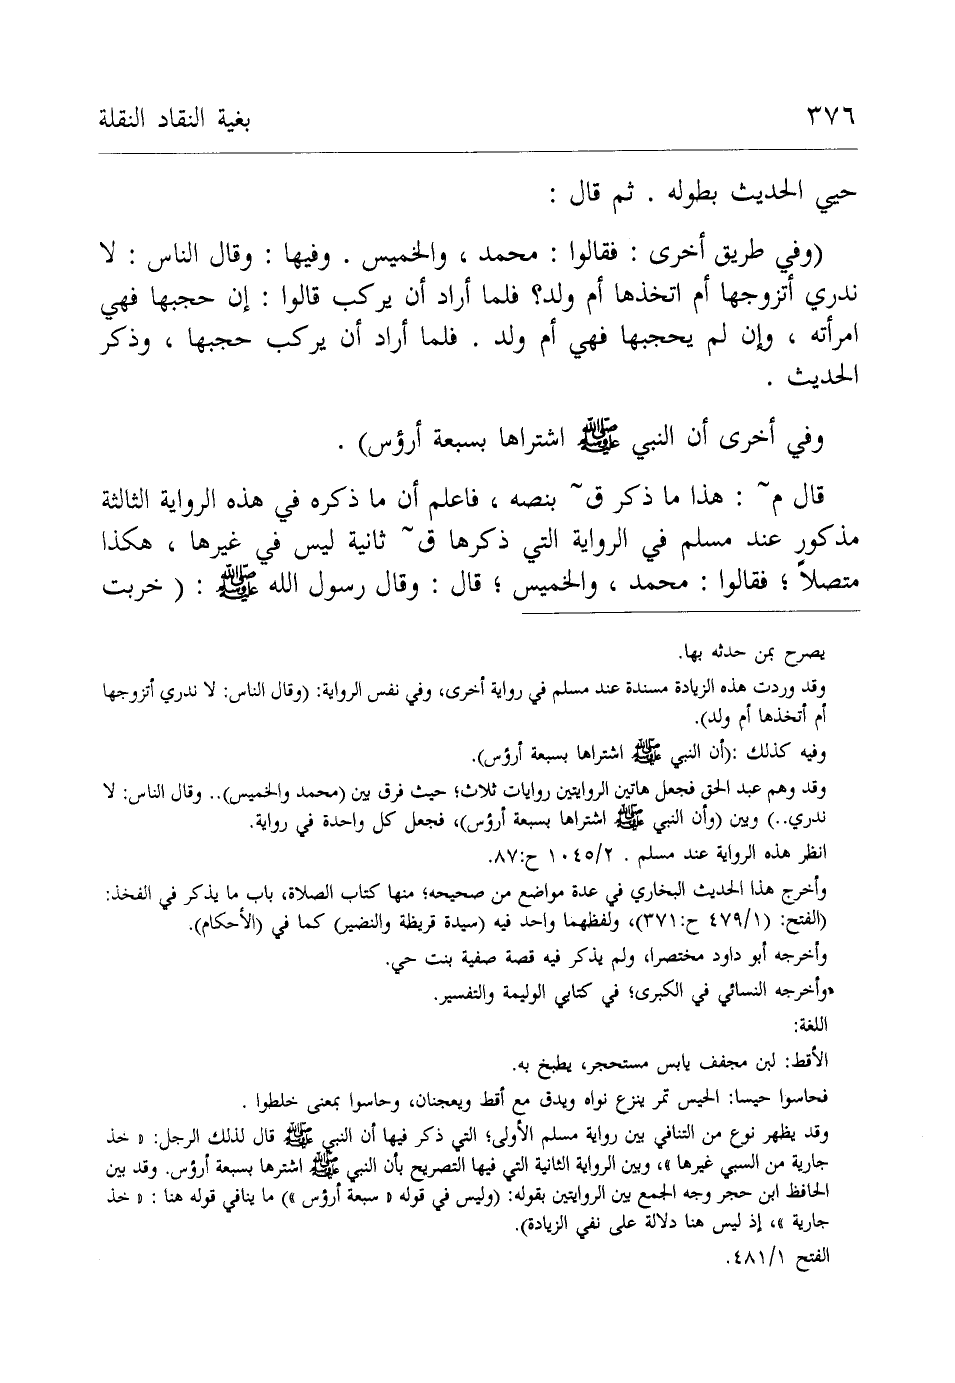 ٣٧٦
بغية النقاد النقلة
حيي الحديث بطوله . ثم قال :
(وفي طريق أخرى : فقالوا : محمد ، والخميس . وفيها : وقال الناس : لا
ندري أتزوجها أم اتخذها أم ولد؟ فلما أراد أن يركب قالوا : إن حجبها فهي
امرأته ، وإن لم يحجبها فهي أم ولد . فلما أراد أن يركب حجبها ، وذكر
الحديث .
وفي أخرى أن النبي ﷺ اشتراها بسبعة أرؤس) .
قال م~ : هذا ما ذكر ق~ بنصه ، فاعلم أن ما ذكره في هذه الرواية الثالثة
مذكور عند مسلم في الرواية التي ذكرها ق~ ثانية ليس في غيرها ، هكذا
متصلاً ؛ فقالوا : محمد ، والخميس ؛ قال : وقال رسول الله ﷺ : ( خربت
يصرح بمن حدثه بها.
وقد وردت هذه الزيادة مسندة عند مسلم في رواية أخرى، وفي نفس الرواية: (وقال الناس: لا ندري أتزوجها
أم أتخذها أم ولد).
وفيه كذلك :(أن النبي ﷺ اشتراها بسبعة أرؤس).
وقد وهم عبد الحق فجعل هاتين الروايتين روايات ثلاث؛ حيث فرق بين (محمد والخميس).. وقال الناس: لا
ندري..) وبين (وأن النبي ﷺ اشتراها بسبعة أرؤس)، فجعل كل واحدة في رواية.
انظر هذه الرواية عند مسلم . ١٠٤٥/٢ ح:٨٧.
وأخرج هذا الحديث البخاري في عدة مواضع من صحيحه؛ منها كتاب الصلاة، باب ما يذكر في الفخذ:
(الفتح: (٤٧٩/١ ح:٣٧١)، ولفظهما واحد فيه (سيدة قريظة والنضير) كما في (الأحكام).
وأخرجه أبو داود مختصرا، ولم يذكر فيه قصة صفية بنت حي.
وأخرجه النسائي في الكبرى؛ في كتابي الوليمة والتفسير.
اللغة:
الأقط: لبن مجفف يابس مستحجر، يطبخ به.
فحاسوا حيسا: الحيس تمر ينزع نواه ويدق مع أقط ويعجنان، وحاسوا بمعنى خلطوا .
وقد يظهر نوع من التنافي بين رواية مسلم الأولى؛ التي ذكر فيها أن النبي ﷺ قال لذلك الرجل: « خذ
جارية من السبي غيرها »، وبين الرواية الثانية التي فيها التصريح بأن النبي ﷺ اشترها بسبعة أرؤس. وقد بين
الحافظ ابن حجر وجه الجمع بين الروايتين بقوله: (وليس في قوله « سبعة أرؤس ») ما ينافي قوله هنا : « خذ
جارية »، إذ ليس هنا دلالة على نفي الزيادة).
الفتح ٤٨١/١.